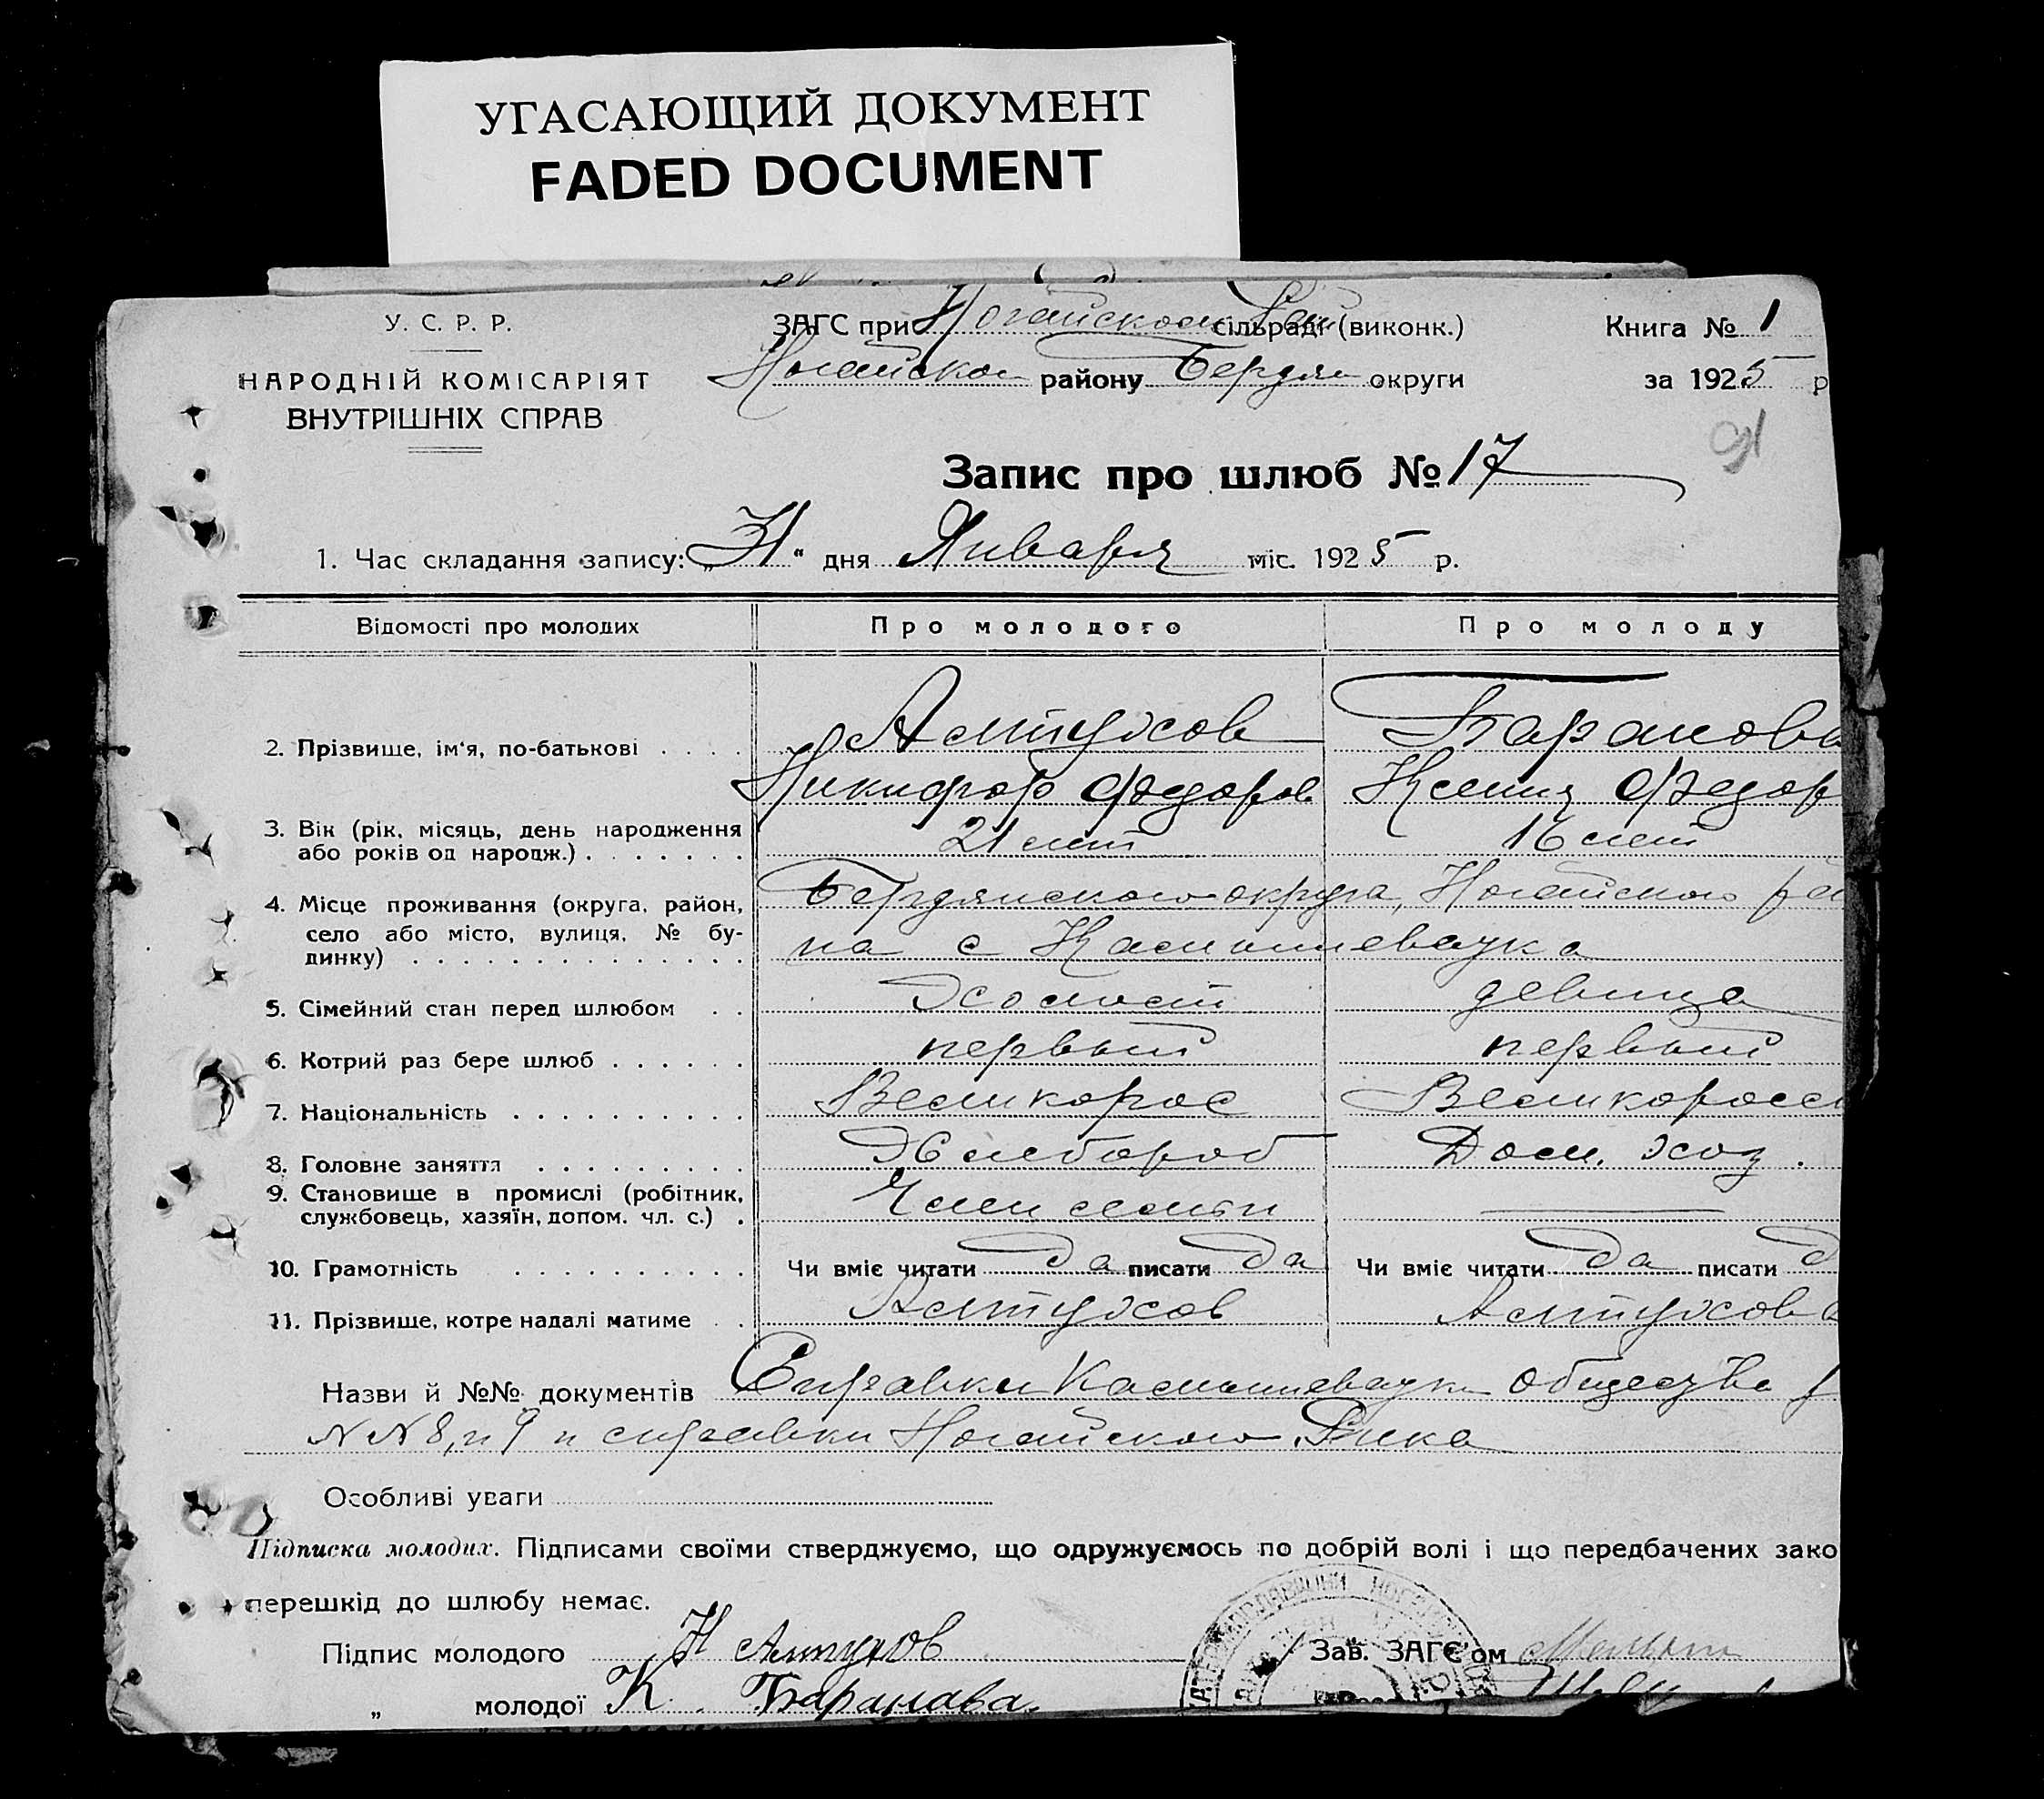 УГАСАЮЩИЙ ДОКУМЕНТ
FADED DOCUMENT
У. С. Р. Р.
НАРОДНІЙ КОМІСАРІЯТ
ВНУТРІШНІХ СПРАВ
ЗАГС при Ногайском сільраді (виконк.)
Ногайском району Бердян округи
Книга № 1
за 1925 р
91
Запис про шлюб № 17
1. Час складання запису: „31“ дня Января міс. 1925 р.
Відомості про молодих Про молодого Про молоду
2. Прізвище, ім'я, по-батькові . . . . Алтухов Баранова
Никифор Федоров Ксения Федор
3. Вік (рік, місяць, день народження
або років од народж.) . . . . . . . 21 лет 16 лет
4. Місце проживання (округа, район,
село або місто, вулиця, № бу-
динку) . . . . . . . . . . . . . . Бердянского округа, Ногайского рай
на с
5. Сімейний стан перед шлюбом . . Холост девица
6. Котрий раз бере шлюб . . . . . . первый первый
7. Національність . . . . . . . . . . Великорос Великоросс
8. Головне заняття . . . . . . . . . Хлебороб Дом. хоз.
9. Становище в промислі (робітник,
службовець, хазяїн, допом. чл. с.) . Член семьи
10. Грамотність . . . . . . . . . . Чи вміє читати да писати да Чи вміє читати да писати д
11. Прізвище, котре надалі матиме . . Алтухов Алтухова
Назви й №№ документів Справки общества
№№ 8, и 9 и справки Ногайского Рика
Особливі уваги
Підписка молодих. Підписами своїми стверджуємо, що одружуємось по добрій волі і що передбачених зако
перешкід до шлюбу немає.
Підпис молодого Н Алтухов
Зав. ЗАГС'ом
„ молодої К. Баранава